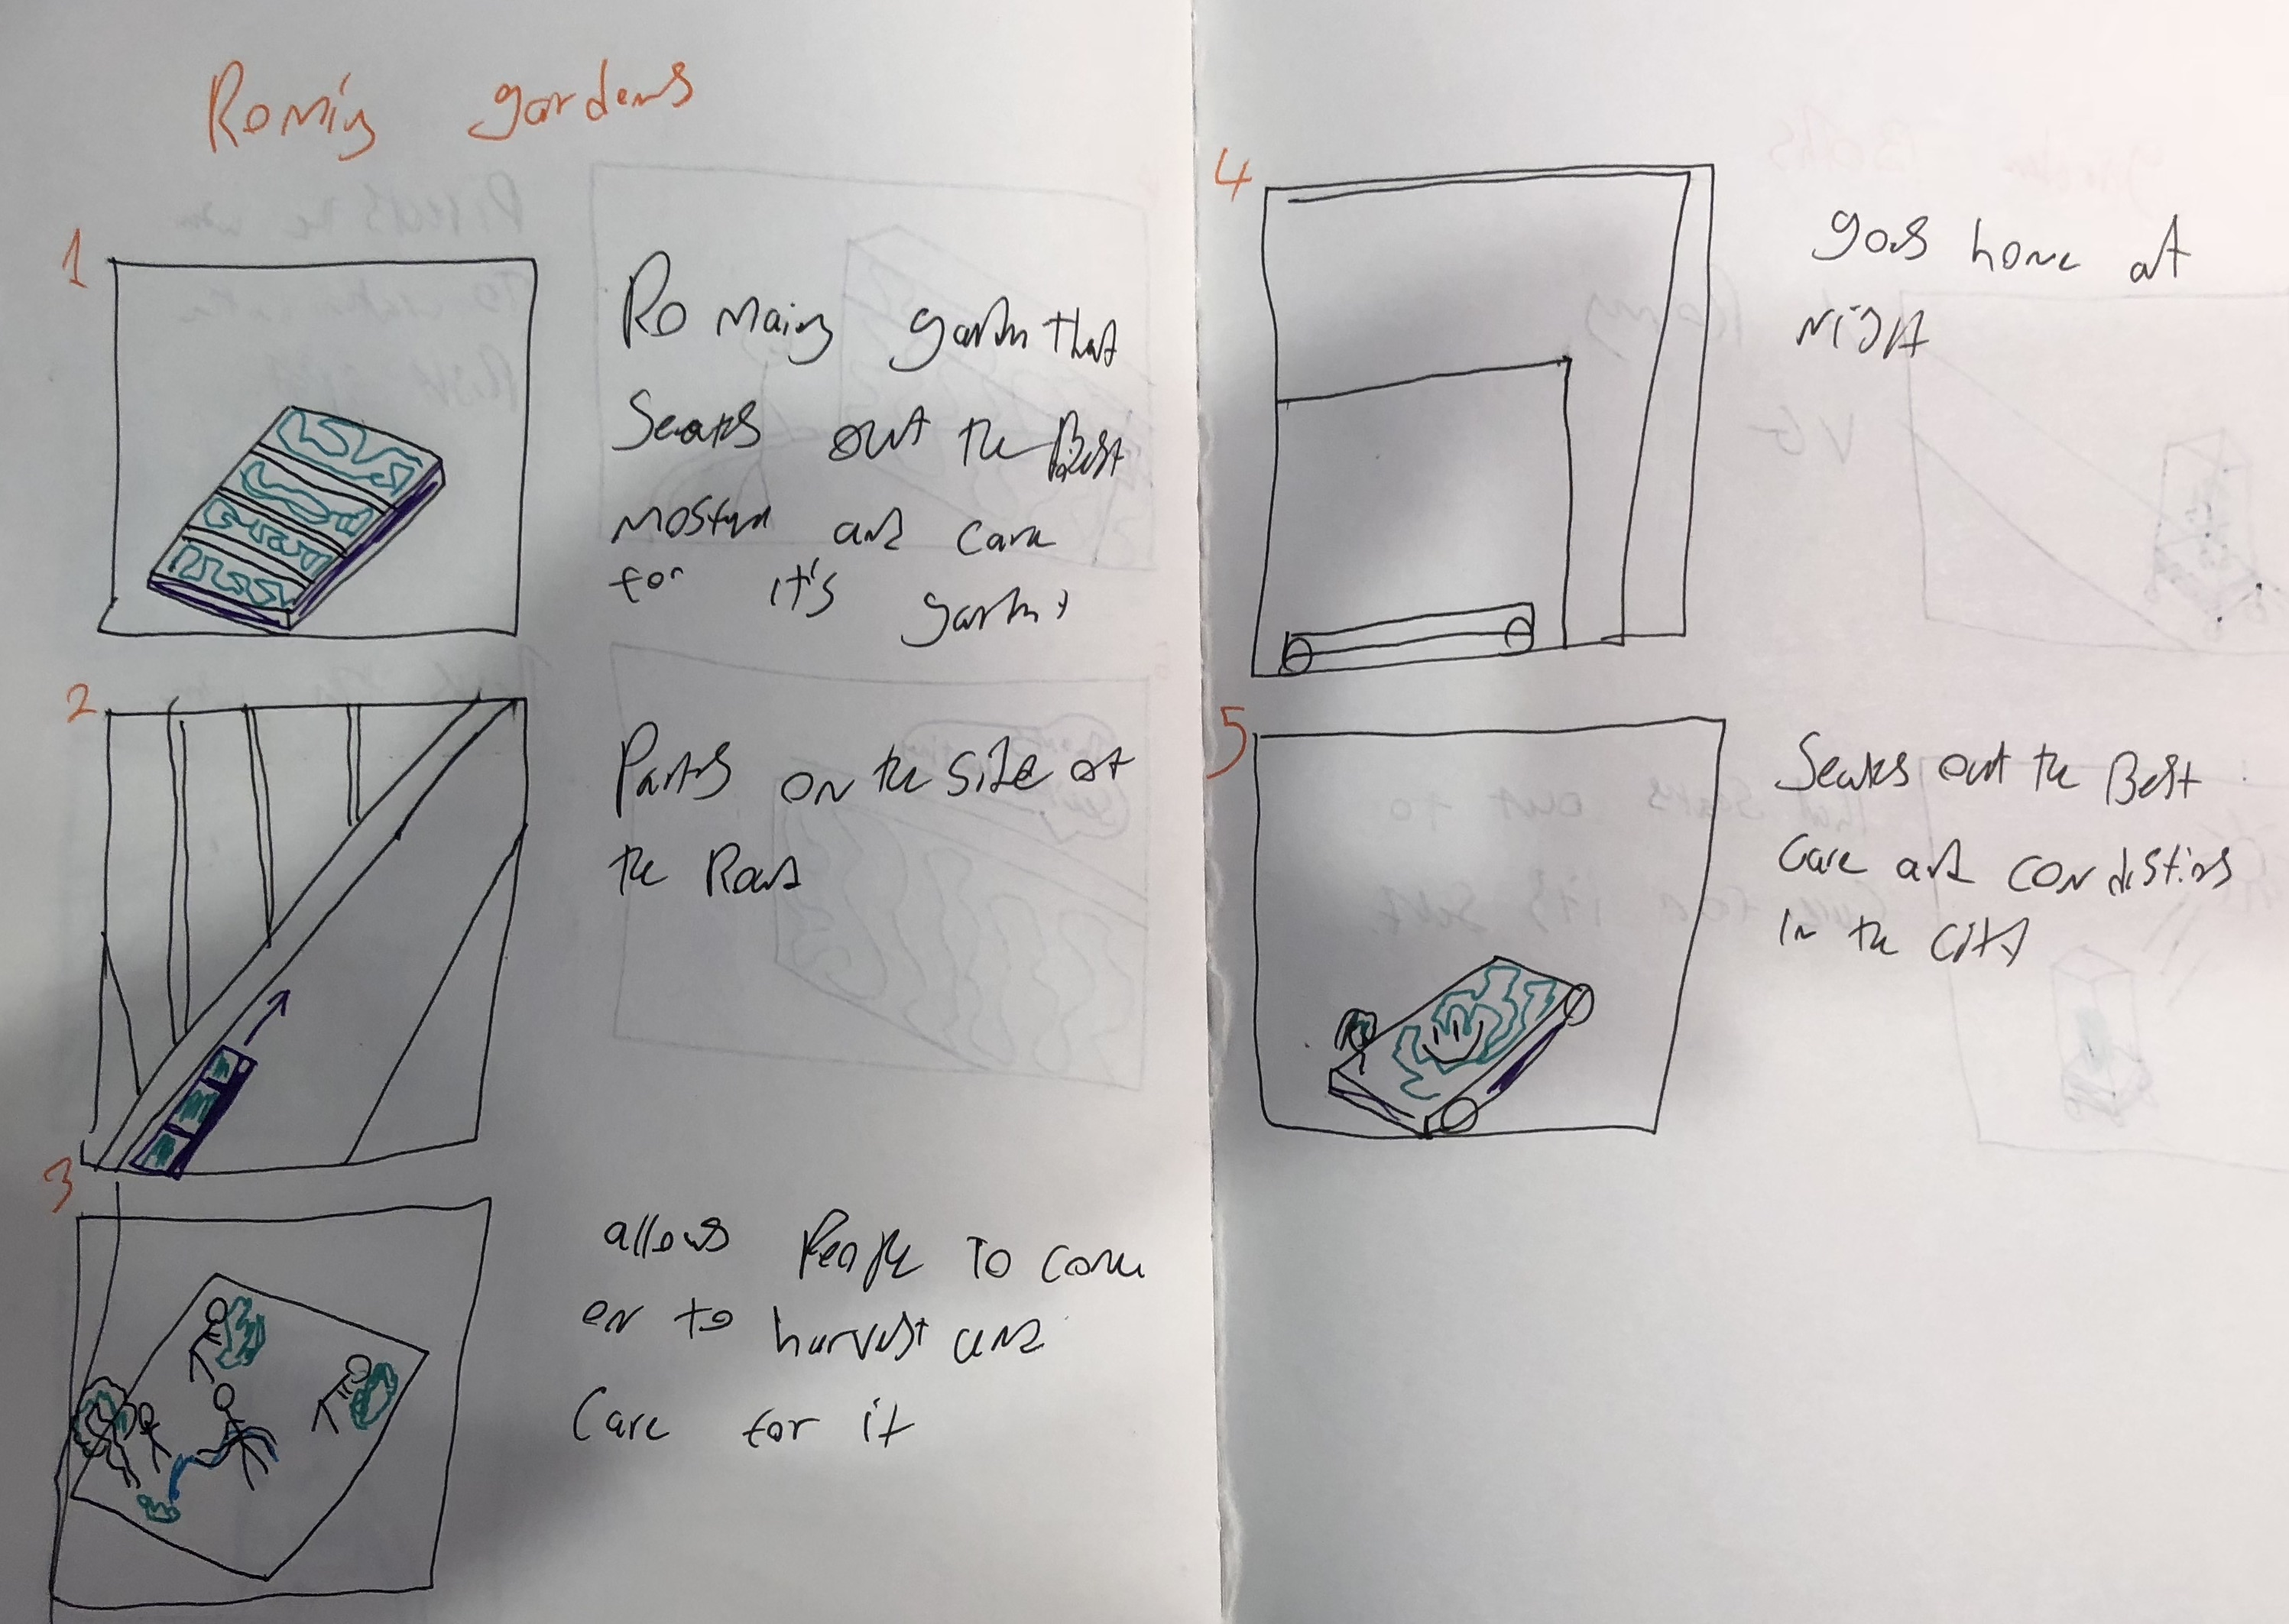 Roming gardens
1
Romaing garden that
Seaks out the Best
mosturn and care
for it's garden
2
Parks on the side of
the Road
3
allows People To come
on to harvest and
Care for it
4
goes home at
night
5
Seaks out the Best
Care and condistins
in the city